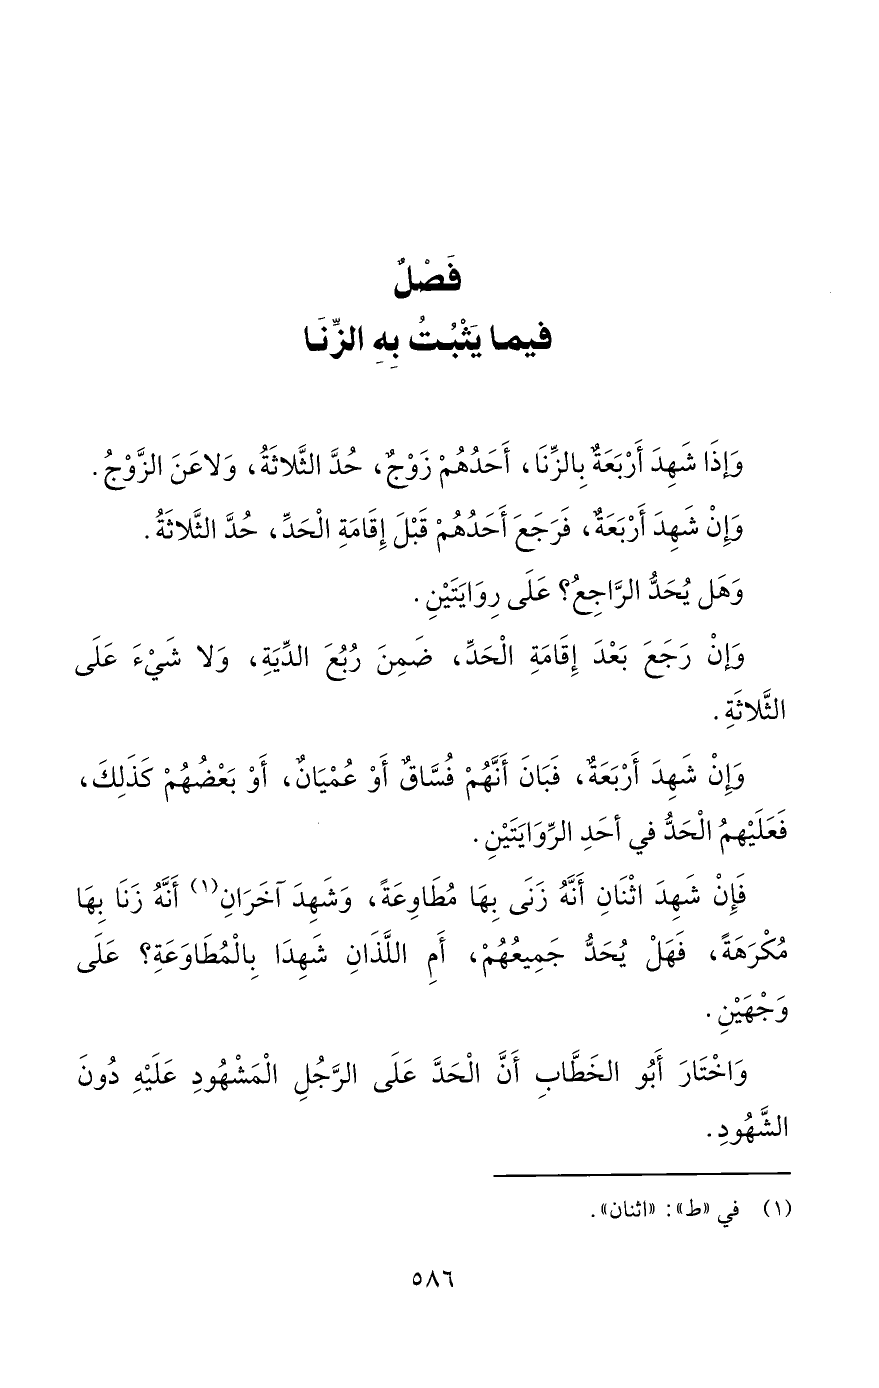 فَصْلٌ
فيما يَثْبُتُ بِهِ الزِّنَا
وَإِذَا شَهِدَ أَرْبَعَةٌ بِالزِّنَا، أَحَدُهُمْ زَوْجٌ، حُدَّ الثَّلاثَةُ، وَلاعَنَ الزَّوْجُ.
وَإِنْ شَهِدَ أَرْبَعَةٌ، فَرَجَعَ أَحَدُهُمْ قَبْلَ إِقَامَةِ الْحَدِّ، حُدَّ الثَّلاثَةُ.
وَهَل يُحَدُّ الرَّاجِعُ؟ عَلَى رِوَايَتَيْنِ.
وَإِنْ رَجَعَ بَعْدَ إِقَامَةِ الْحَدِّ، ضَمِنَ رُبُعَ الدِّيَةِ، وَلا شَيْءَ عَلَى
الثَّلاثَةِ.
وَإِنْ شَهِدَ أَرْبَعَةٌ، فَبَانَ أَنَّهُمْ فُسَّاقٌ أَوْ عُمْيَانٌ، أَوْ بَعْضُهُمْ كَذَلِكَ،
فَعَلَيْهِمُ الْحَدُّ في أحَدِ الرِّوَايَتَيْنِ.
فَإِنْ شَهِدَ اثْنَانِ أَنَّهُ زَنَى بِهَا مُطَاوِعَةً، وَشَهِدَ آخَرَانِ(١) أَنَّهُ زَنَا بِهَا
مُكْرَهَةً، فَهَلْ يُحَدُّ جَمِيعُهُمْ، أَمِ اللَّذَانِ شَهِدَا بِالْمُطَاوَعَةِ؟ عَلَى
وَجْهَيْنِ.
وَاخْتَارَ أَبُو الخَطَّابِ أَنَّ الْحَدَّ عَلَى الرَّجُلِ الْمَشْهُودِ عَلَيْهِ دُونَ
الشَّهُودِ.
(١) في «ط»: «اثنان».
٥٨٦